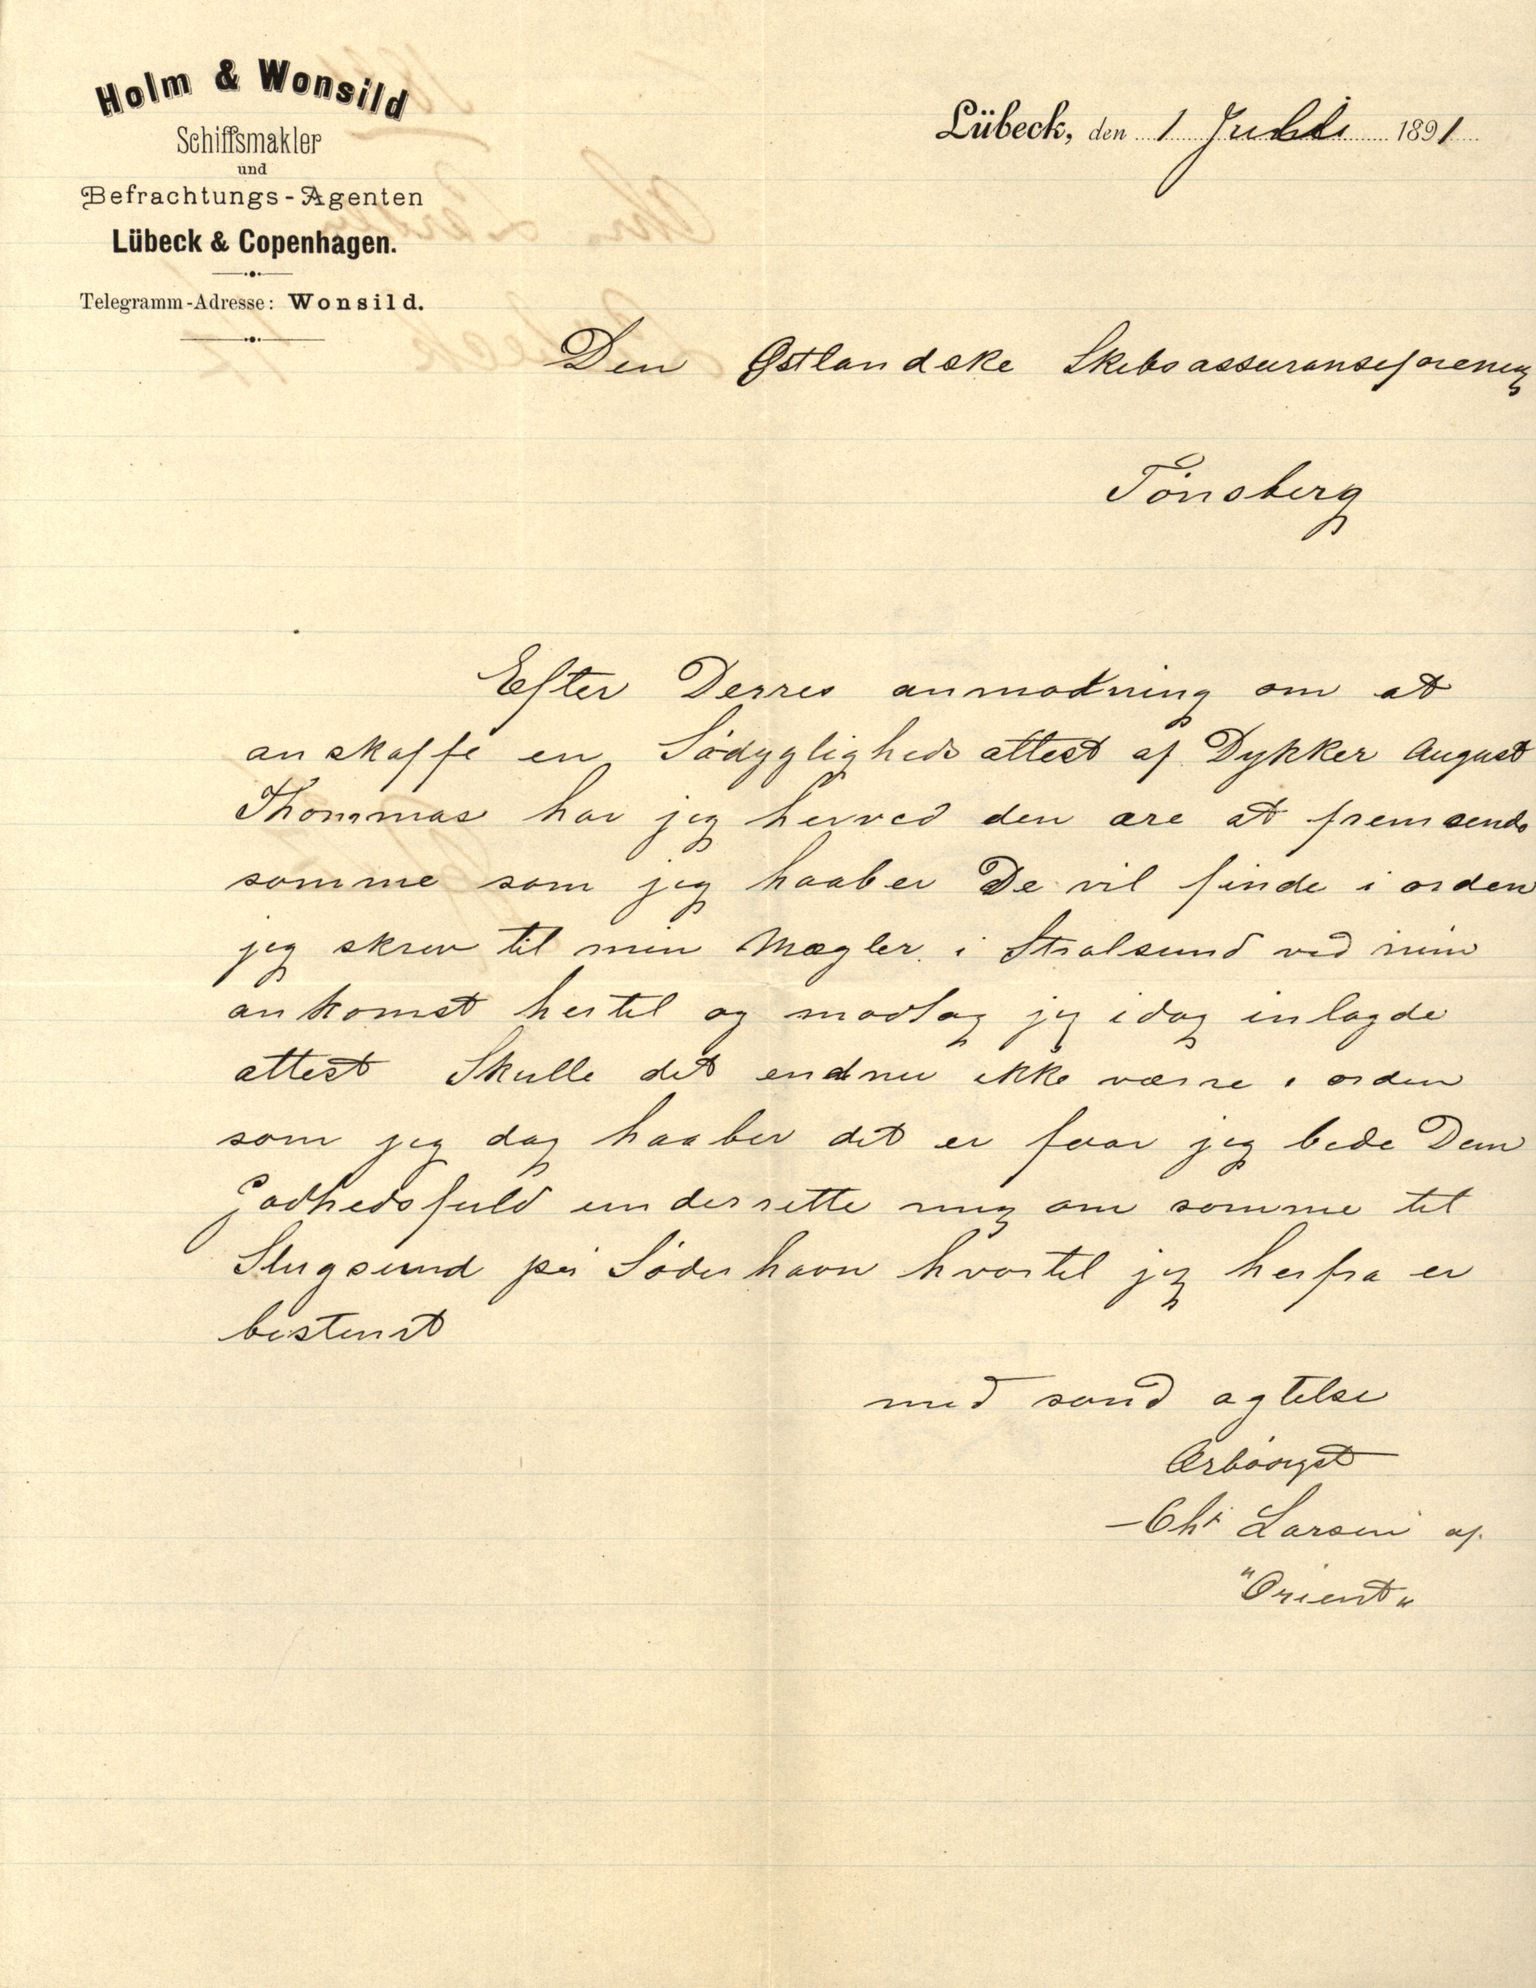 Holm & Wonsild
Schiffsmakler
und
Befrachtungs-Agenten
Lübeck & Copenhagen.
Telegramm-Adresse: Wonsild.
Lübeck, den 1 Juli 1891
Den Østlandske Skibsassuranseforening
Tönsberg
Efter Derres anmodning om at
anskaffe en Södygligheds attest af Dykker August
Thommas har jeg herved den ære at fremsende
somme som jeg haaber De vil finde i orden
jeg skrev til min Mægler i Stralsund ved min
ankomst hertil og modtog jeg idag inlagde
attest Skulle det endnu ikke værre i orden
som jeg dog haaber det er faar jeg bede Dem
Godhedsfuld underrette mig om somme til
Slugsund pr Söderhavn hvortil jeg herfra er
bestemt
med sand agtelse
Ærbödigst
Chr Larsen af
"Orient"